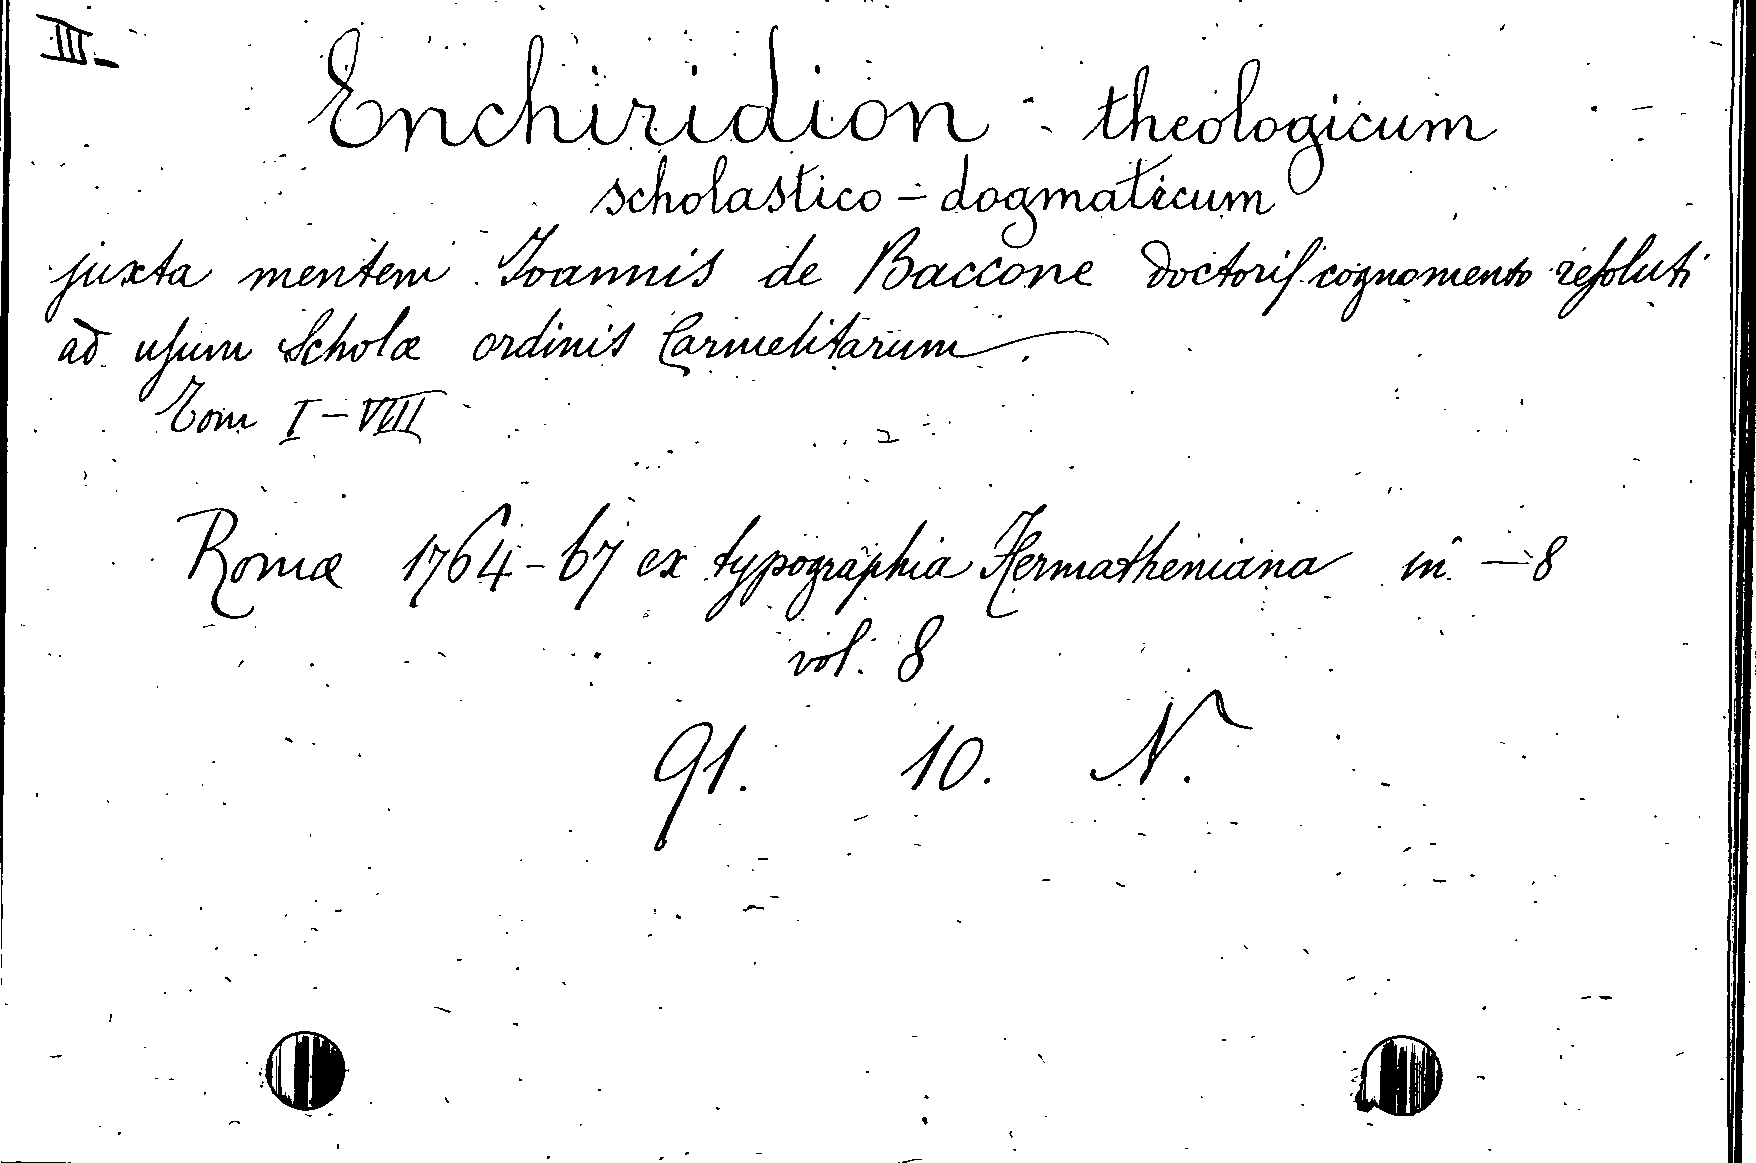 III-
Enchiridion theologicum
scholastico-dogmaticum
juxta mentem Ioannis de Baccone doctoriſ cognomento reſoluti
ad uſum Scholæ ordinis Carmelitarum.
Tom I-VIII
Romæ 1764-67 ex typographia Hermatheniana in -8
vol. 8
91. 10. N.